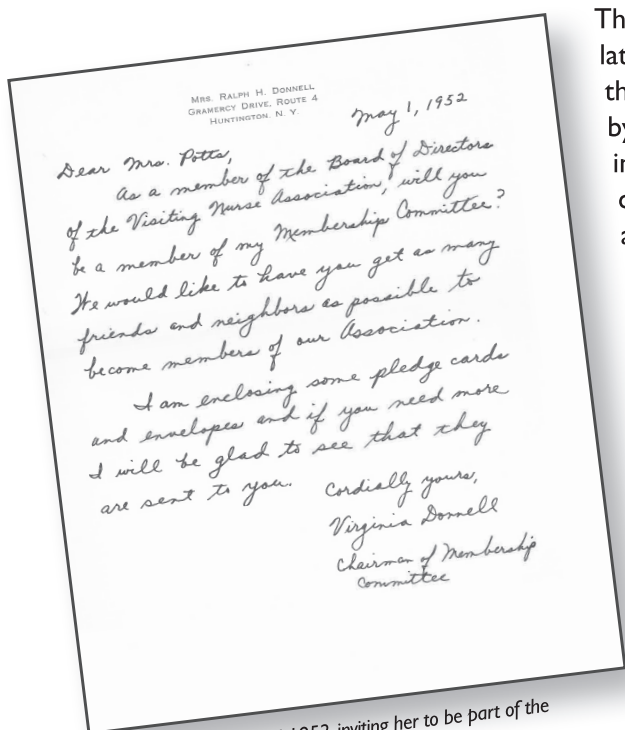 MRS. RALPH H. DONNELL
GRAMERCY DRIVE, ROUTE 4
HUNTINGTON, N. Y.
May 1, 1952
Dear Mrs. Potts,
As a member of the Board of Directors
of the Visiting Nurse Association, will you
be a member of my Membership Committee?
We would like to have you get as many
friends and neighbors as possible to
become members of our Association.
I am enclosing some pledge cards
and envelopes and if you need more
I will be glad to see that they
are sent to you.
Cordially yours,
Virginia Donnell
Chairman of Membership
Committee
inviting her to be part of the